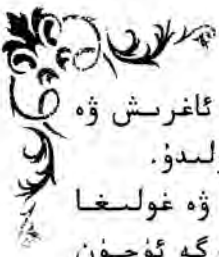 ئاغرىش ۋە
لىندۇ.
ۋە غولىغا
گە ئۈچۈن